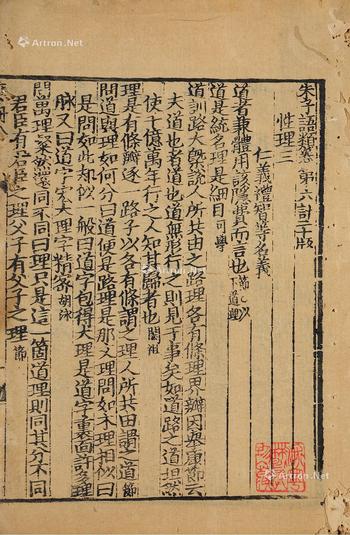 朱子語類卷第六計二十版
性理三
仁義禮智等名義
道者兼體用該隱費而言也節以下道理
道是統名理是細目可學
道訓路大槩說人所共由之路理各有條理界瓣因舉康節云
夫道也者道也道無形行之則見于事矣如道路之道坦然
使千億萬年行之人知其歸者也閎祖
理是有條瓣逐一路子以各有條謂之理人所共由謂之道節
問道與理如何分曰道便是路理是那文理問如木理相似曰
是問如此却似一般曰道字包得大理是道字裏面許多理
脉又曰道字宏大理字精密胡泳
問萬理粲然還同不同曰理只是這一箇道理則同其分不同
君臣有君臣之理父子有父子之理節
Artron.Net
Artron.Net
Artron.Net